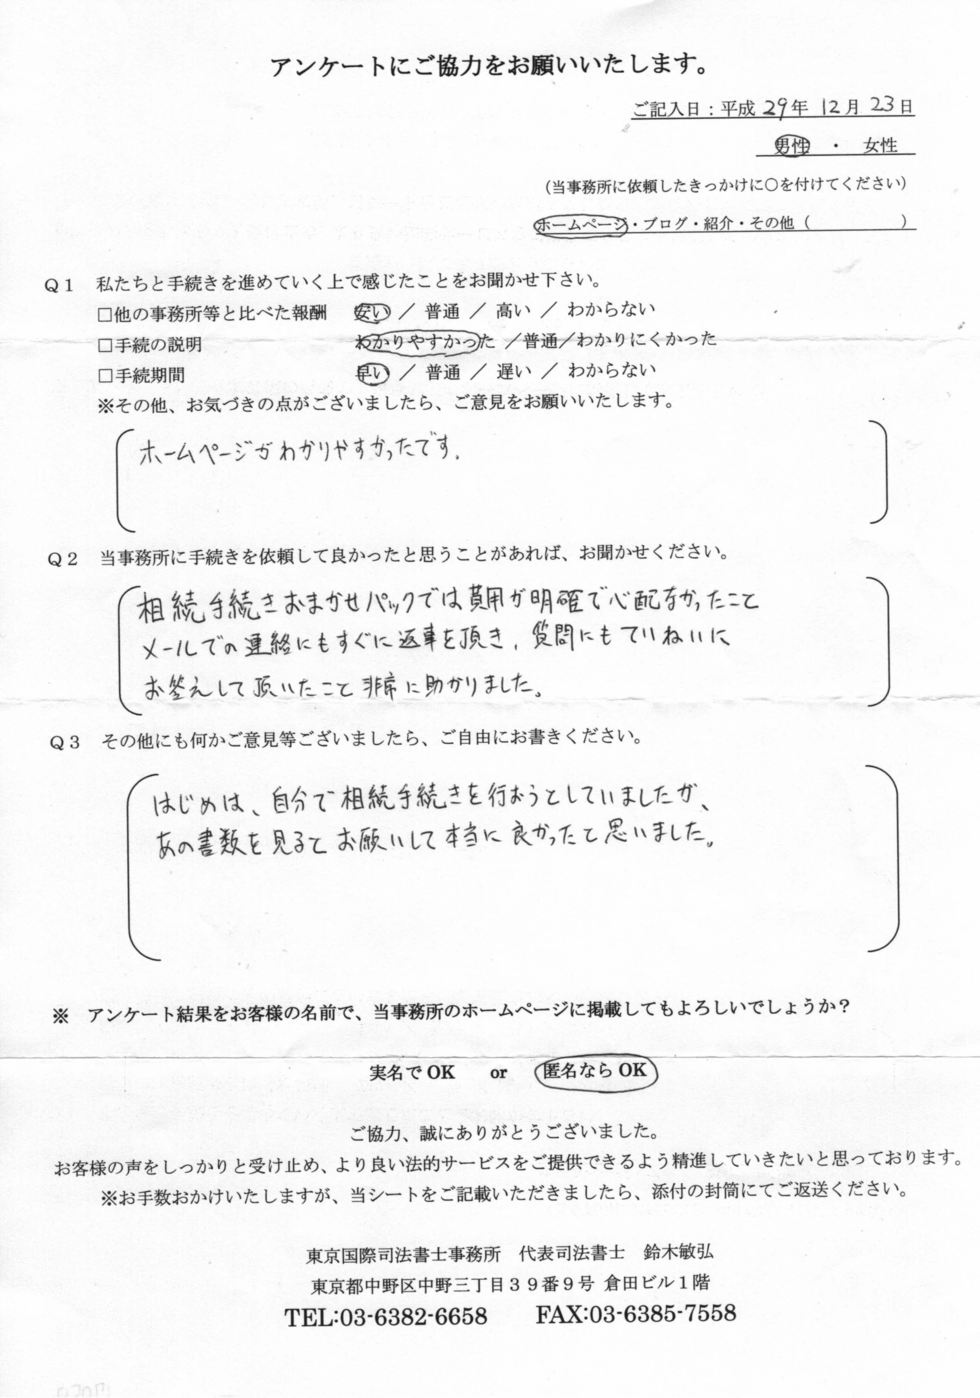 アンケートにご協力をお願いいたします。
ご記入日：平成 29年 12月 23日
男性 ・ 女性
（当事務所に依頼したきっかけに○を付けてください）
ホームページ・ブログ・紹介・その他（　　　　　　）
Ｑ１　私たちと手続きを進めていく上で感じたことをお聞かせ下さい。
□他の事務所等と比べた報酬　安い ／ 普通 ／ 高い ／ わからない
□手続の説明　わかりやすかった ／普通／わかりにくかった
□手続期間　早い ／ 普通 ／ 遅い ／ わからない
※その他、お気づきの点がございましたら、ご意見をお願いいたします。
ホームページがわかりやすかったです.
Ｑ２　当事務所に手続きを依頼して良かったと思うことがあれば、お聞かせください。
相続手続きおまかせパックでは費用が明確で心配なかったこと
メールでの連絡にもすぐに返事を頂き、質問にもていねいに
お答えして頂いたこと 非常に助かりました。
Ｑ３　その他にも何かご意見等ございましたら、ご自由にお書きください。
はじめは、自分で相続手続きを行おうとしていましたが、
あの書数を見るとお願いして本当に良かったと思いました。
※　アンケート結果をお客様の名前で、当事務所のホームページに掲載してもよろしいでしょうか？
実名で OK　or　匿名なら OK
ご協力、誠にありがとうございました。
お客様の声をしっかりと受け止め、より良い法的サービスをご提供できるよう精進していきたいと思っております。
※お手数おかけいたしますが、当シートをご記載いただきましたら、添付の封筒にてご返送ください。
東京国際司法書士事務所　代表司法書士　鈴木敏弘
東京都中野区中野三丁目３９番９号 倉田ビル１階
TEL:03-6382-6658　FAX:03-6385-7558